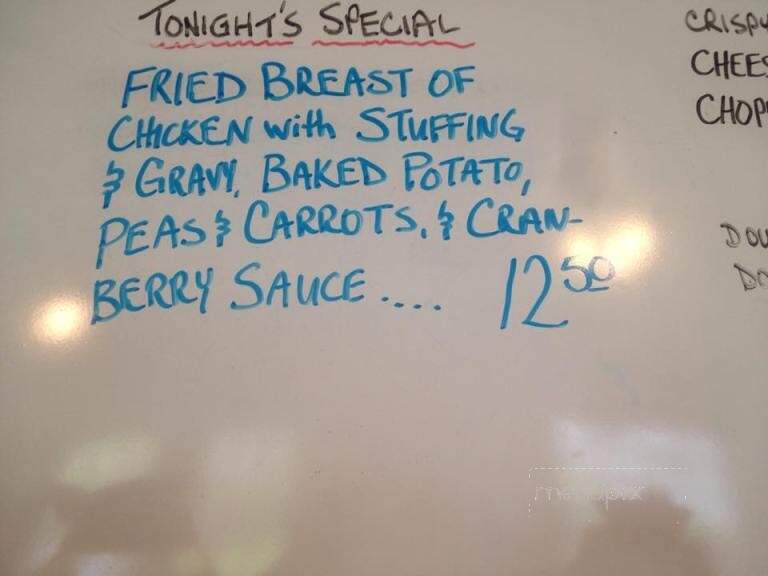 TONIGHT'S SPECIAL
FRIED BREAST OF
CHICKEN with STUFFING
& GRAVY, BAKED POTATO,
PEAS & CARROTS, & CRAN-
BERRY SAUCE .... 12 50
CRISPY
CHEES
CHOP
DOU